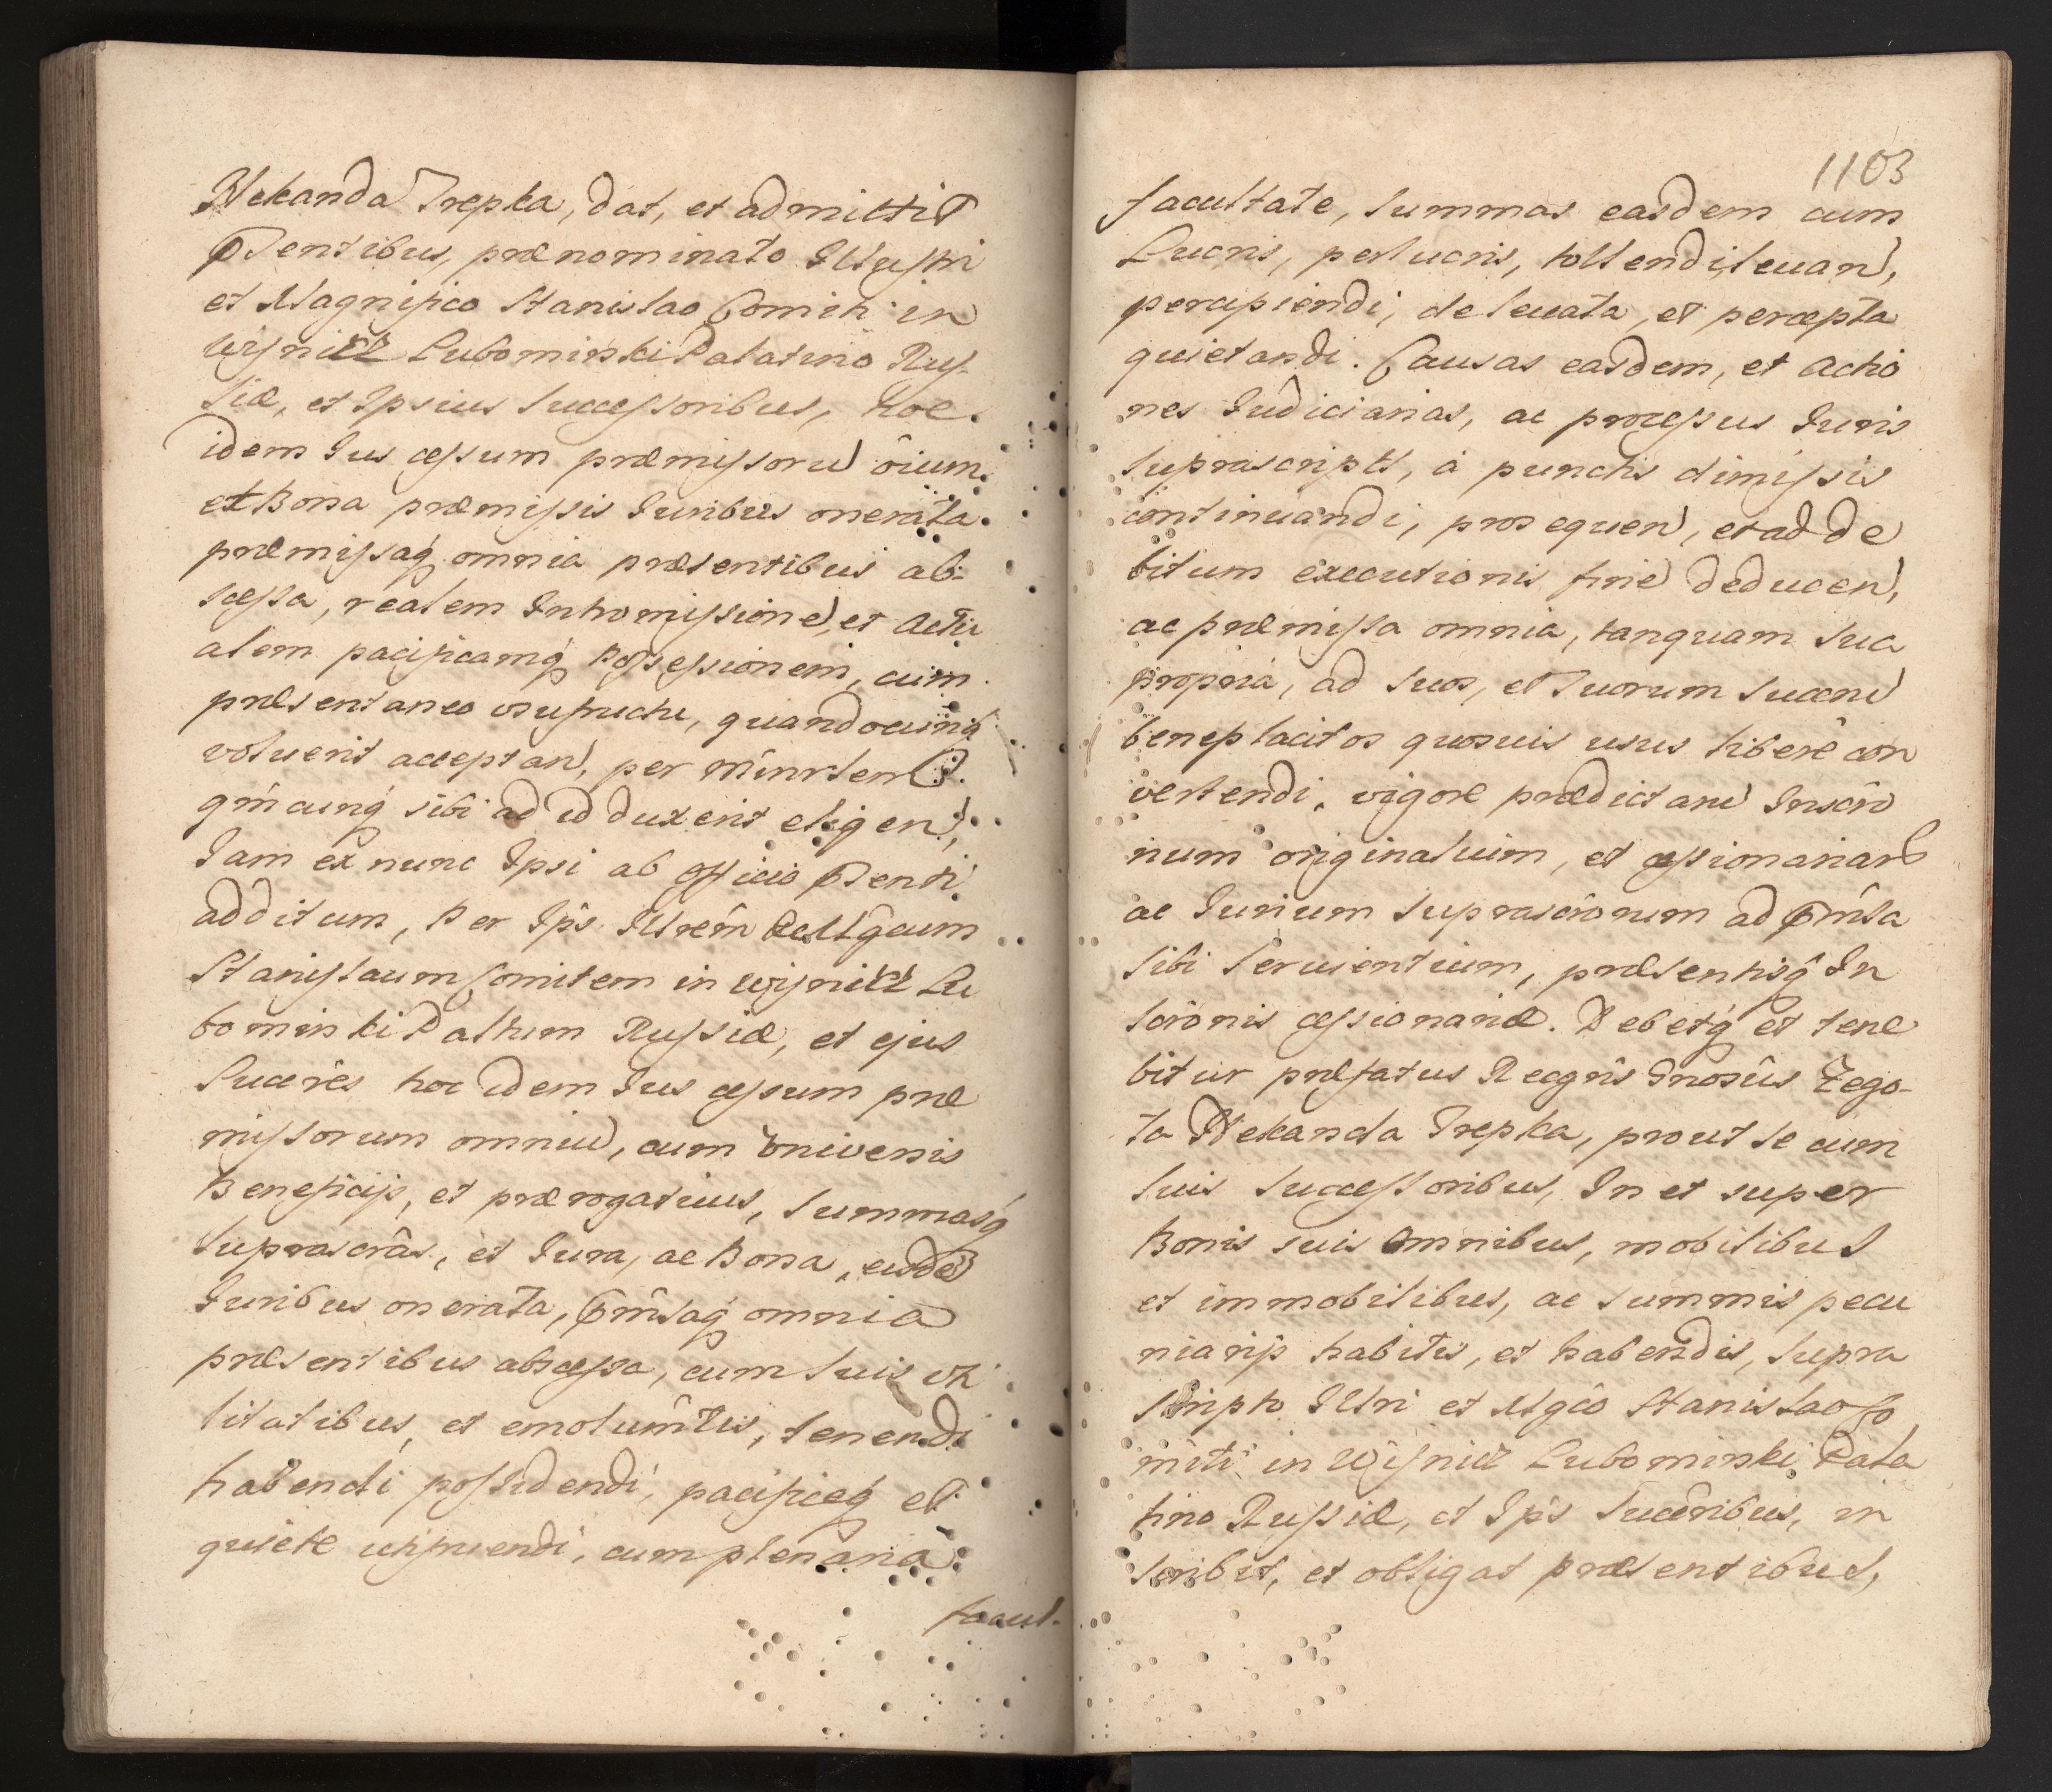 Nekanda Trepka, dat, et admittit
pntentibus, prænominato Illustri
et Magnifico Stanislao Comiti in
Wisnicz Lubomirski Palatino Rus-
siæ, et Ipsius Successoribus, hoc
idem Ius cessum præmissoru oium
et Bona præmissis Iuribus onerata
præmissaq omnia præsentibus ab-
scessa, realem Intromissione, et Actu
alem pacificamq Possessionem, cum
præsentaneo usufructu, quandocunq
voluerit acceptan, per Minrlem R.
qmcunq sibi ad id duxerit eligen,
Iam ex nunc Ipsi ab officio pnti
additum, Per Ips Illrem et Mgcum
Stanislaum Comitem in Wisnicz Lu
bomirski Paltinum Russiæ, et ejus
Succres hoc idem Ius cessum præ
missorum omniu, cum Universis
Beneficijs, et prærogativis, Summasq
suprascras, et Iura, ac Bona, eisde
Iuribus onerata, pmsaq omnia
præsentibus abscessa, cum suis uti
litatibus, et emolumtis, tenendi
habendi possidendi, pacificeq et
quiete utifruendi, cum plenaria
facul-
1103
facultate, Summas easdem cum
Lucris, perlucris, tollendi levan,
percipiendi, de levata, et percepta
quietandi. Causas easdem, et Actio
nes Iudiciarias, ac processus Iuris
suprascripti, à punctis dimissis
continuandi, prosequen, et ad de
bitum executionis fine deducen,
ac præmissa omnia, tanquam sua
propria, ad suos, et suorum Succru
beneplacitos quosuis usus libere con
vertendi, vigore prædictaru Inscrip
num originalium, et cessionariar
ac Iurium suprascronum ad pmsa
sibi servientium, præsentisq In
scronis cessionariæ. Debetq et tene
bitur præfatus Recgns Gnosus Zego-
ta Nekanda Trepka, prout se cum
suis Successoribus, In et super
Bonis suis Omnibus, mobilibus
et immobilibus, ac summis pecu
niarijs habitis, et habendis, supra
scripto Illri et Mgco Stanislao Co
miti in Wisnicz Lubomirski Pala
tino Russiæ, et Ips Succribus, in
scribit, et obligat præsentibus,